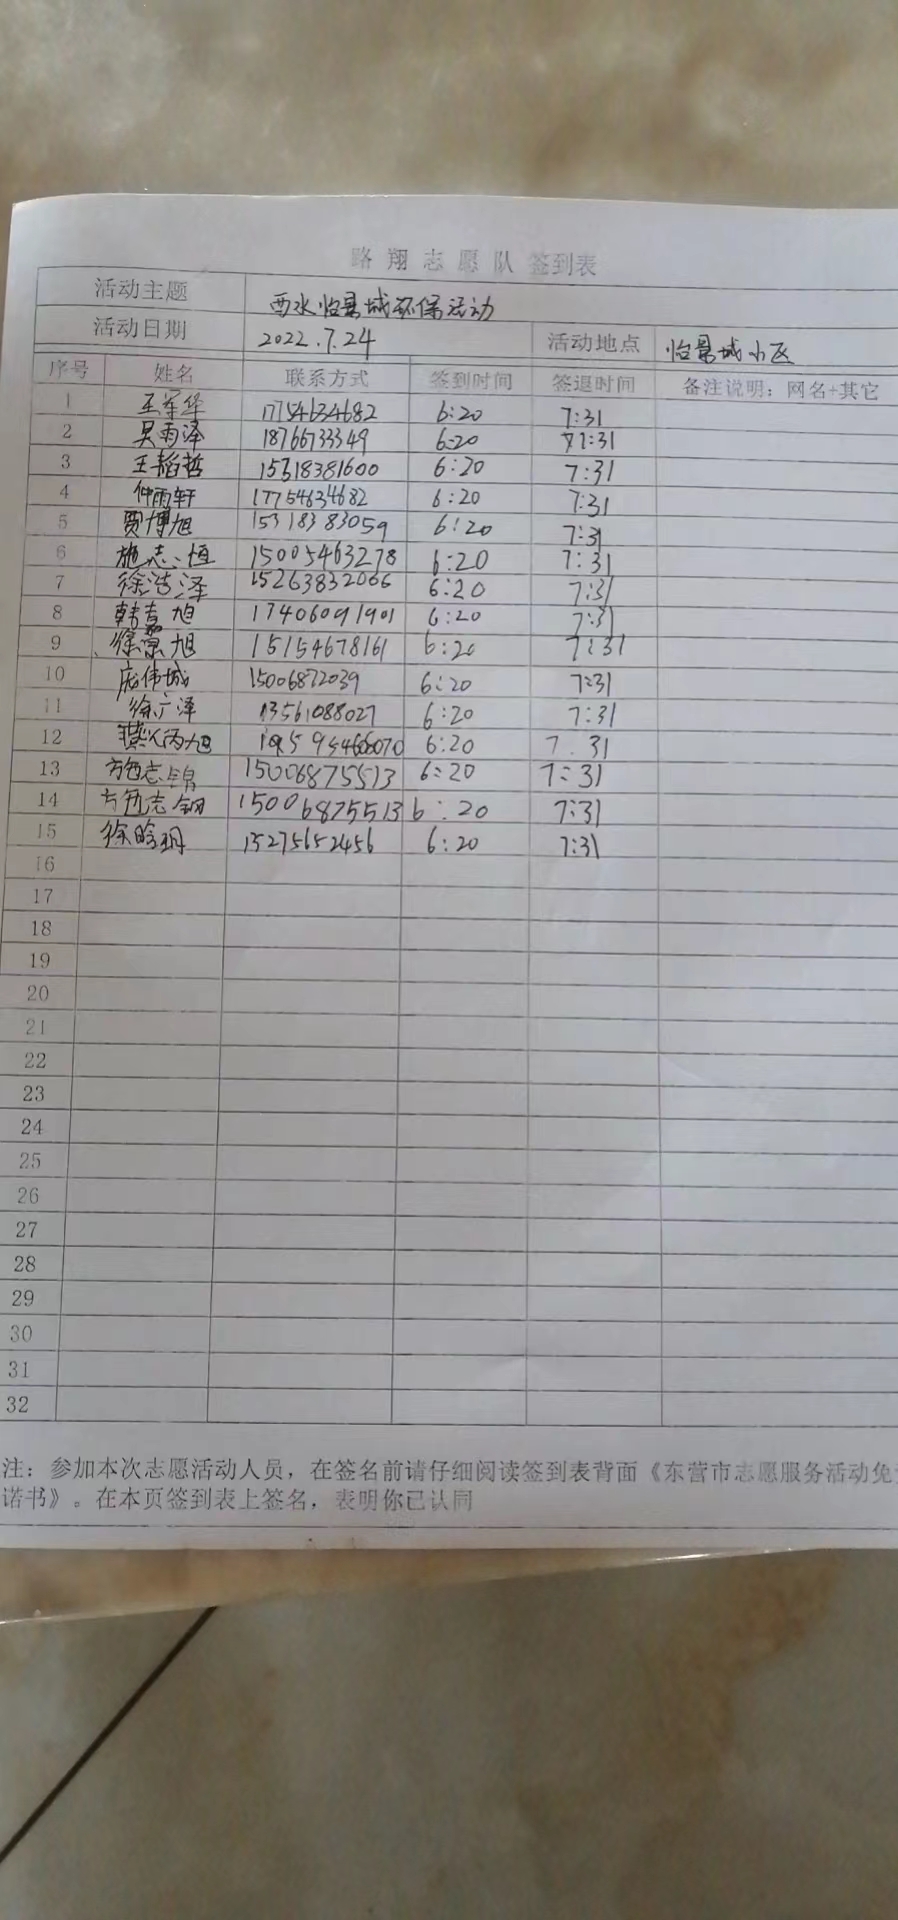 路翔志愿队 签到表
活动主题 西水怡景城环保活动
活动日期 2022.7.24 活动地点 怡景城小区
序号 姓名 联系方式 签到时间 签退时间 备注说明：网名+其它
1 王军华 17754634682 6:20 7:31
2 吴雨泽 18766733349 6:20 7:31
3 王韬哲 15318381600 6:20 7:31
4 仲雨轩 17754634682 6:20 7:31
5 贾博旭 15318383059 6:20 7:31
6 施志恒 15005463278 6:20 7:31
7 徐浩泽 15263832066 6:20 7:31
8 韩嘉旭 17406091901 6:20 7:31
9 徐景旭 15154678161 6:20 7:31
10 庞伟城 15006872039 6:20 7:31
11 徐广泽 13561088027 6:20 7:31
12 6:20 7.31
13 15006875513 6:20 7:31
14 15006875513 6:20 7:31
15 徐晗玥 15275652456 6:20 7:31
16
17
18
19
20
21
22
23
24
25
26
27
28
29
30
31
32
注：参加本次志愿活动人员，在签名前请仔细阅读签到表背面《东营市志愿服务活动免
诺书》。在本页签到表上签名，表明你已认同